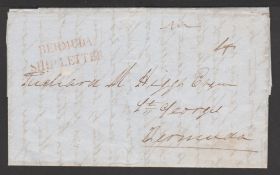 BERMUDA
SHIP LETTER
4
Richard M Higgs Esqr
St Georges
Bermuda